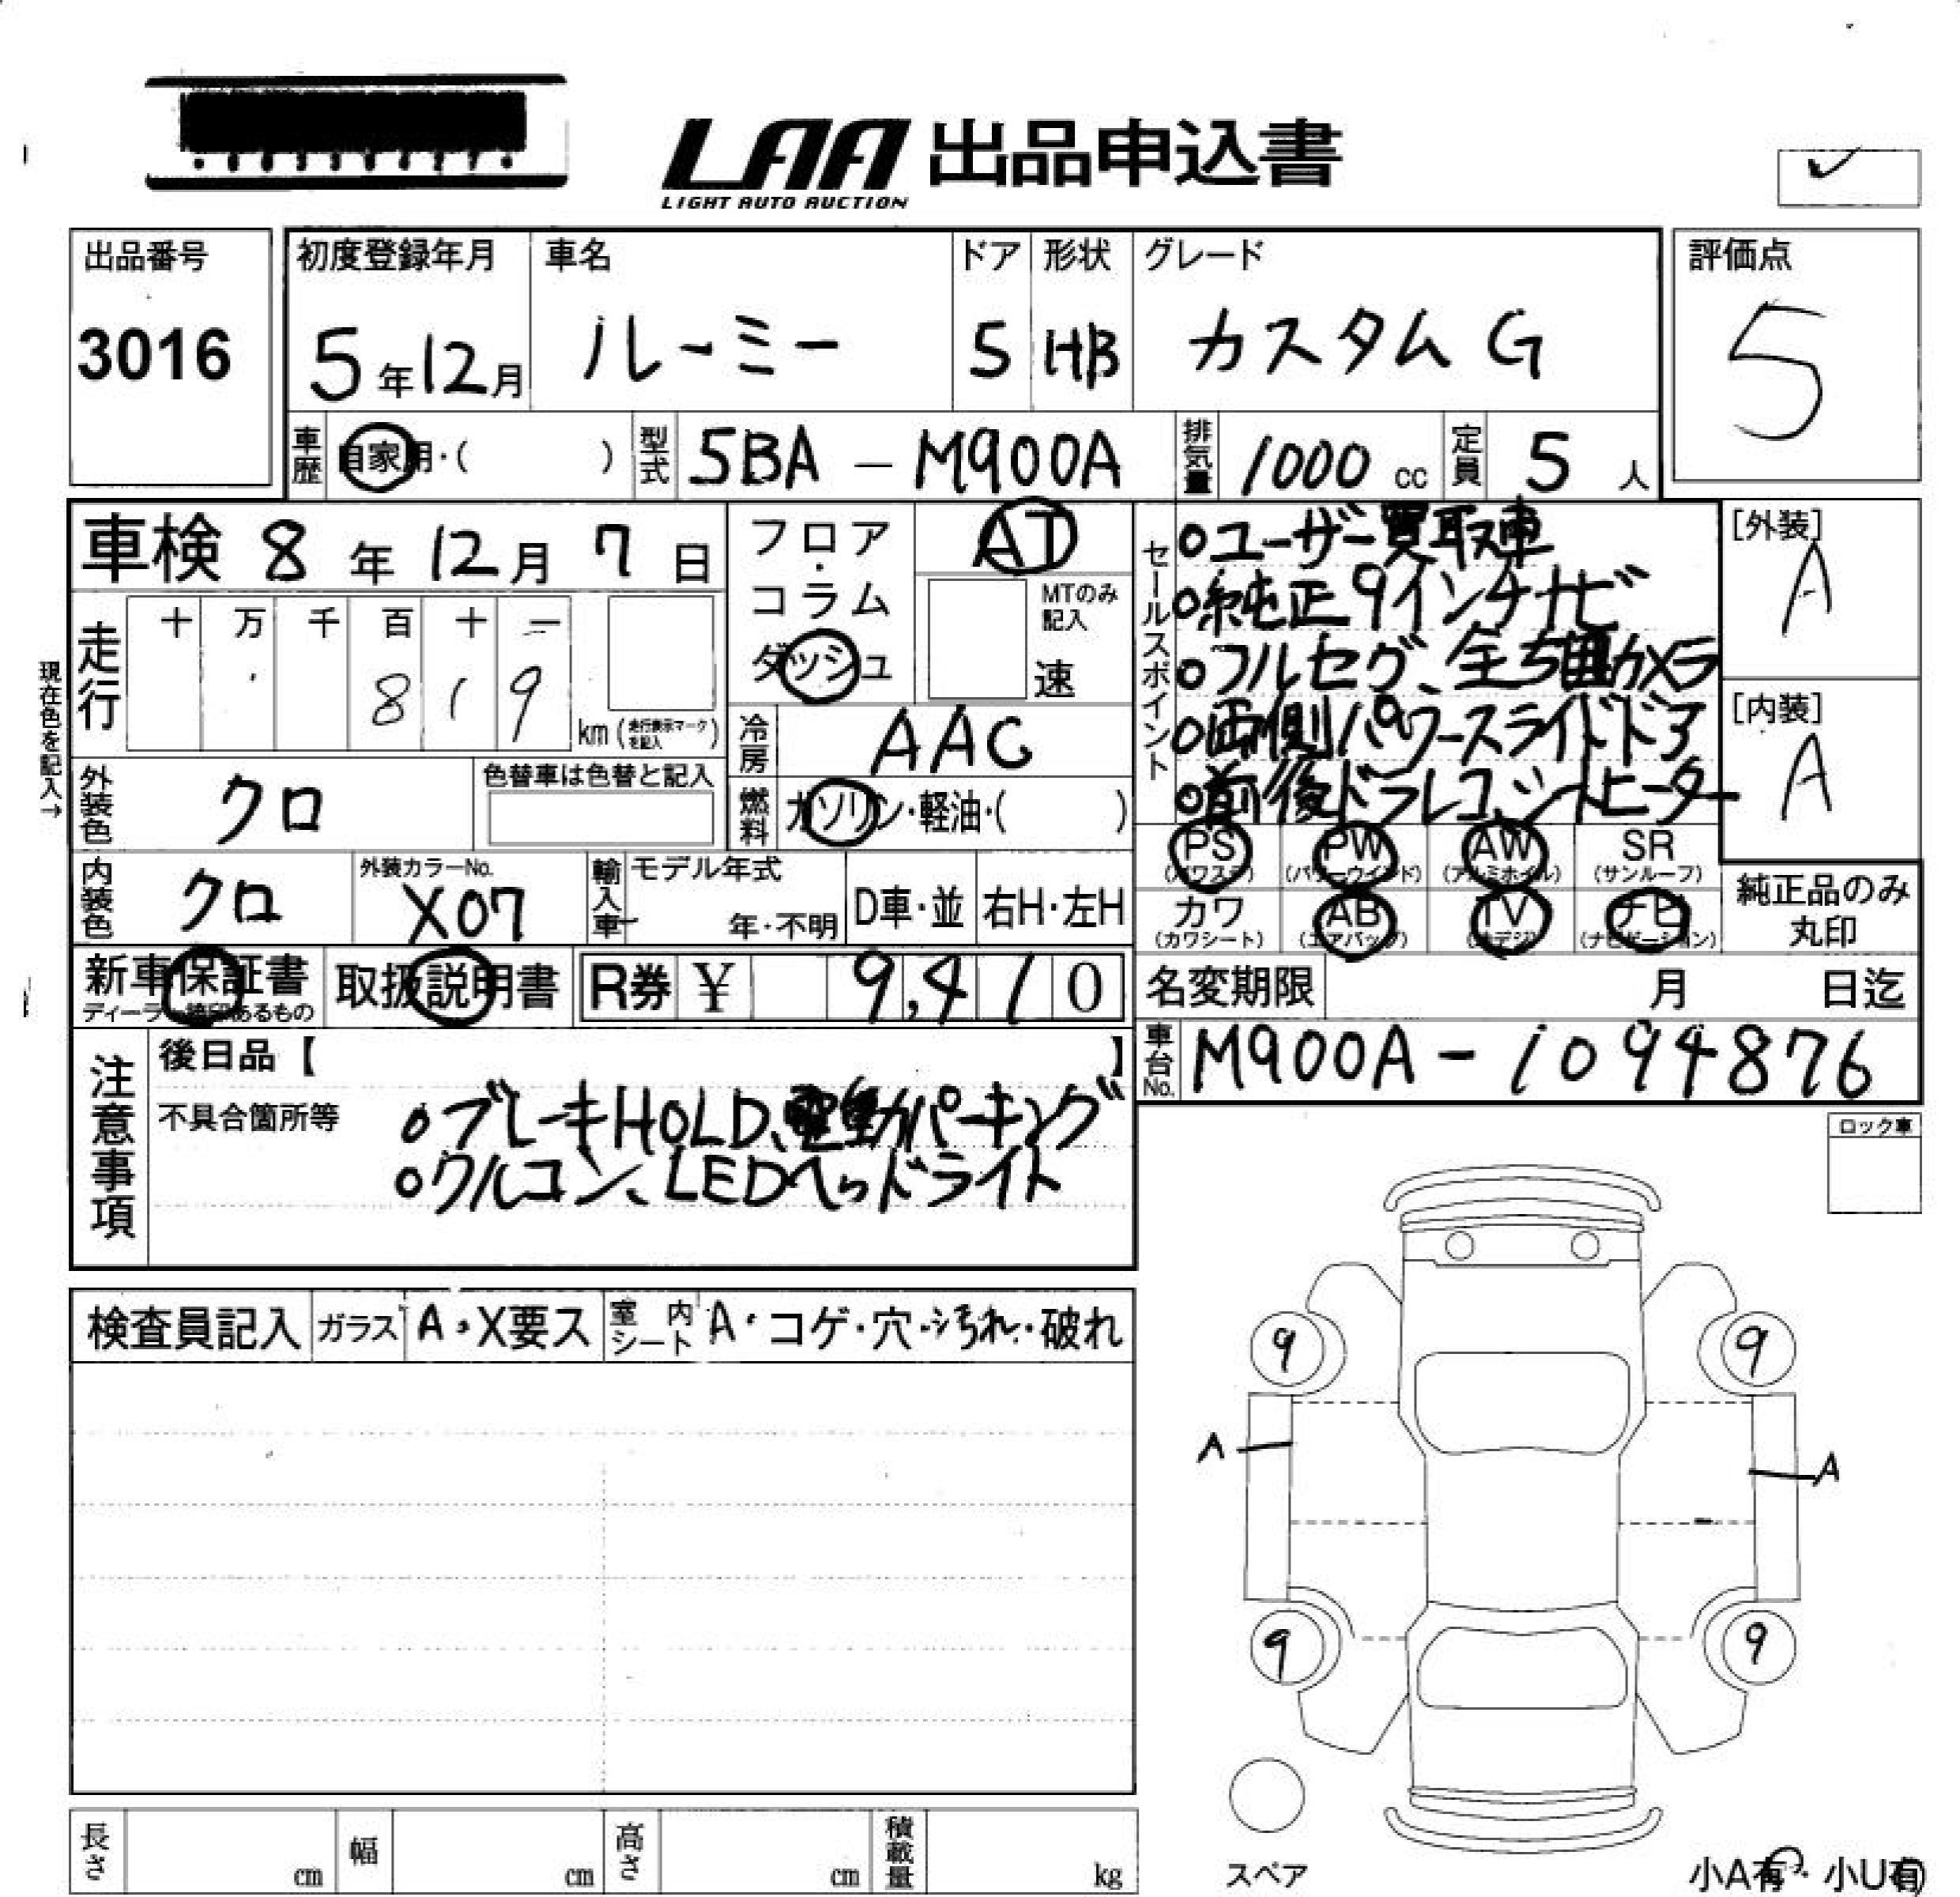 LAA 出品申込書
LIGHT AUTO AUCTION
出品番号
3016
初度登録年月
5年12月
車名
ルーミー
ドア
5
形状
HB
グレード
カスタム G
評価点
5
車歴
自家用・( )
型式
5BA - M900A
排気量
1000 cc
定員
5 人
車検 8年12月7日
走行
十 万 千 百 十 一
819
km (走行表示マークを記入)
現在色を記入→
フロア・コラム
ダッシュ
AT
MTのみ記入
速
冷房
AAC
燃料
ガソリン・軽油・( )
セールスポイント
○ユーザー買取車
○純正9インチナビ
○フルセグ、全方囲カメラ
○両側パワースライドドア
○前後ドラレコ、シートヒーター
[外装]
A
[内装]
A
外装色
クロ
色替車は色替と記入
内装色
クロ
外装カラーNo.
X07
輸入車
モデル年式
年・不明
D車・並
右H・左H
PS
(パワステ)
PW
(パワーウインド)
AW
(アルミホイル)
SR
(サンルーフ)
カワ
(カワシート)
AB
(エアバッグ)
TV
(地デジ)
ナビ
(ナビゲーション)
純正品のみ
丸印
新車保証書
取扱説明書
R券 ¥ 9,410
名変期限 月 日迄
車台No.
M900A-1094876
注意事項
後日品【 】
不具合箇所等
○ブレーキHOLD、電動パーキング
○クルコン、LEDヘッドライト
ロック車
検査員記入
ガラス
A・X要ス
室内シート
A・コゲ・穴・汚れ・破れ
9
9
A
A
9
9
スペア
小A有・小U有
長さ cm
幅 cm
高さ cm
積載量 kg